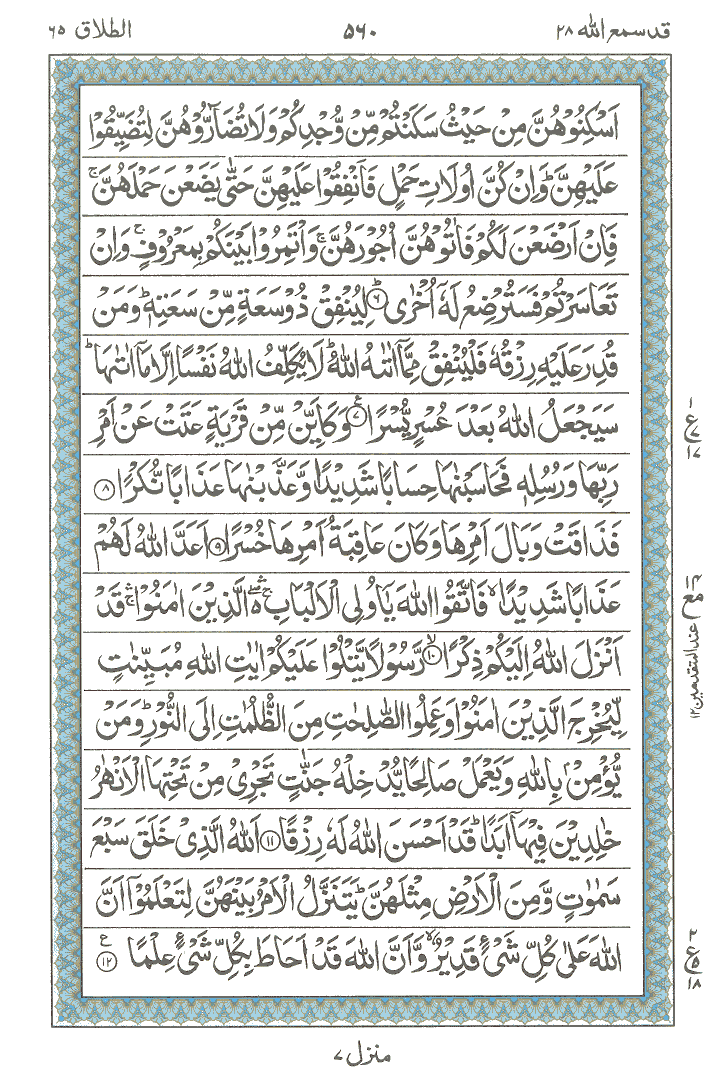 قد سمع الله ٢٨
٥٦٠
الطلاق ٦٥
اَسْكِنُوْهُنَّ مِنْ حَيْثُ سَكَنْتُمْ مِّنْ وُّجْدِكُمْ وَلَا تُضَآرُّوْهُنَّ لِتُضَيِّقُوْا
عَلَيْهِنَّ ؕ وَاِنْ كُنَّ اُولَاتِ حَمْلٍ فَاَنْفِقُوْا عَلَيْهِنَّ حَتّٰى يَضَعْنَ حَمْلَهُنَّ ۚ
فَاِنْ اَرْضَعْنَ لَكُمْ فَاٰتُوْهُنَّ اُجُوْرَهُنَّ ۚ وَاْتَمِرُوْا بَيْنَكُمْ بِمَعْرُوْفٍ ۚ وَاِنْ
تَعَاسَرْتُمْ فَسَتُرْضِعُ لَهٗۤ اُخْرٰى ؕ‏﴿۶﴾ لِيُنْفِقْ ذُوْ سَعَةٍ مِّنْ سَعَتِهٖ ؕ وَمَنْ
قُدِرَ عَلَيْهِ رِزْقُهٗ فَلْيُنْفِقْ مِمَّاۤ اٰتٰٮهُ اللّٰهُ ؕ لَا يُكَلِّفُ اللّٰهُ نَفْسًا اِلَّا مَاۤ اٰتٰٮهَا ؕ
سَيَجْعَلُ اللّٰهُ بَعْدَ عُسْرٍ يُّسْرًا ﴿۷﴾ وَكَاَيِّنْ مِّنْ قَرْيَةٍ عَتَتْ عَنْ اَمْرِ
رَبِّهَا وَرُسُلِهٖ فَحَاسَبْنٰهَا حِسَابًا شَدِيْدًا وَّعَذَّبْنٰهَا عَذَابًا نُّكْرًا ﴿۸﴾
فَذَاقَتْ وَبَالَ اَمْرِهَا وَكَانَ عَاقِبَةُ اَمْرِهَا خُسْرًا ﴿۹﴾ اَعَدَّ اللّٰهُ لَهُمْ
عَذَابًا شَدِيْدًا ۙ فَاتَّقُوا اللّٰهَ يٰۤاُولِى الْاَلْبَابِ ۛۚ ۖ ۵ الَّذِيْنَ اٰمَنُوْا ۛۚ قَدْ
اَنْزَلَ اللّٰهُ اِلَيْكُمْ ذِكْرًا ۙ‏﴿۱۰﴾ رَّسُوْلًا يَّتْلُوْا عَلَيْكُمْ اٰيٰتِ اللّٰهِ مُبَيِّنٰتٍ
لِّيُخْرِجَ الَّذِيْنَ اٰمَنُوْا وَعَمِلُوا الصّٰلِحٰتِ مِنَ الظُّلُمٰتِ اِلَى النُّوْرِ ؕ وَمَنْ
يُّؤْمِنْۢ بِاللّٰهِ وَيَعْمَلْ صَالِحًا يُّدْخِلْهُ جَنّٰتٍ تَجْرِىْ مِنْ تَحْتِهَا الْاَنْهٰرُ
خٰلِدِيْنَ فِيْهَاۤ اَبَدًا ؕ قَدْ اَحْسَنَ اللّٰهُ لَهٗ رِزْقًا ﴿۱۱﴾ اَللّٰهُ الَّذِىْ خَلَقَ سَبْعَ
سَمٰوٰتٍ وَّمِنَ الْاَرْضِ مِثْلَهُنَّ ؕ يَتَنَزَّلُ الْاَمْرُ بَيْنَهُنَّ لِتَعْلَمُوْۤا اَنَّ
اللّٰهَ عَلٰى كُلِّ شَىْءٍ قَدِيْرٌ ۙ وَّاَنَّ اللّٰهَ قَدْ اَحَاطَ بِكُلِّ شَىْءٍ عِلْمًا ﴿۱۲﴾
١
ع
٧
١٧
١٤
مع
عند المتقدمين ١٢
٢
ع
٥
١٨
منزل ٧